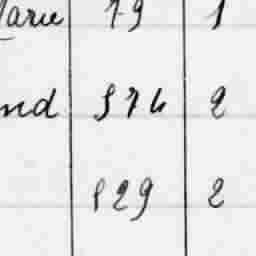 Marie 79 1
nd 574 2
129 2